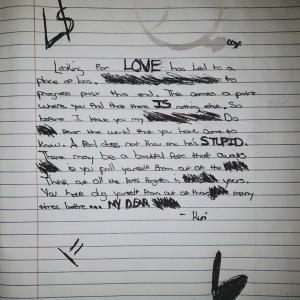 Looking for LOVE has led to a
place of loss. to
progress past this end. The comes a point
where you find that there IS nothing else. So
before I leave you my Do
fear the world that you have come to
know. A fool does not know the he's STUPID.
There may be a beautiful fate that always
is to you pull yourself from out of the
Think out all the lives forgotten in years.
You have dig yourself from out of this many
times before... MY DEAR
- Kuri